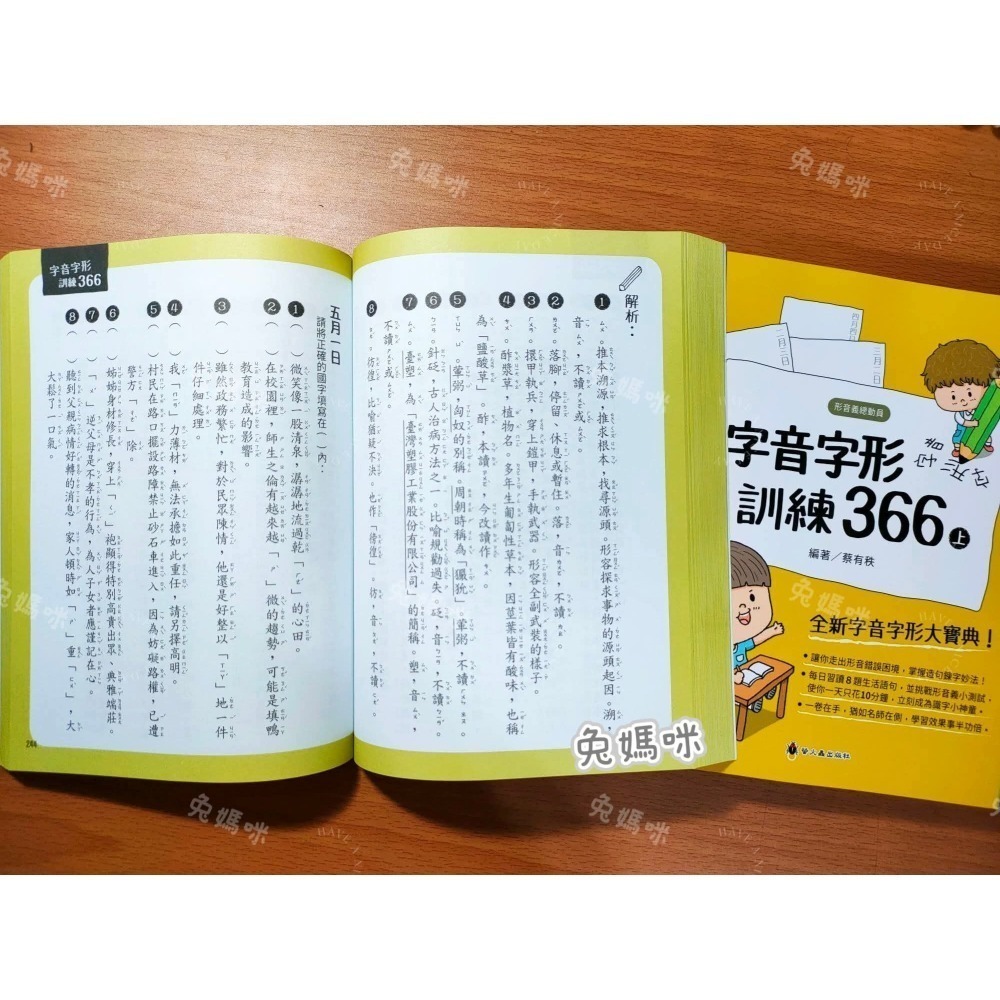 解析：
1 ㄙㄨˋ。推本溯源，推求根本，找尋源頭。形容探求事物的源頭起因。溯，
音ㄙㄨˋ，不讀ㄕㄨㄛˋ或
2 ㄌㄨㄛˋ。落腳，停留、休息或暫住。落，音ㄌㄨㄛˋ，不讀
3 擐甲執兵，穿上鎧甲，手執武器。形容全副武裝的樣子。
4 ㄘㄨˋ。酢漿草，植物名。多年生匍匐性草本，因莖葉皆有酸味，也稱
為「鹽酸草」。酢，本讀，今改讀作
5 ㄒㄩㄣ ㄩˋ。葷粥，匈奴的別稱。周朝時稱為「玁狁」。葷粥，不讀
6 ㄅㄧㄢ。針砭，古人治病方法之一。比喻規勸過失。砭，音ㄅㄧㄢ，不讀
7 ㄙㄨˋ。臺塑，為「臺灣塑膠工業股份有限公司」的簡稱。塑，音ㄙㄨˋ，
不讀ㄕㄨㄛˋ或
8 ㄆㄤˊ。彷徨，比喻猶疑不決。也作「徬徨」。彷，音ㄆㄤˊ，不讀
字音字形
訓練366
五月一日
請將正確的國字填寫在（ ）內：
1（ ）微笑像一股清泉，潺潺地流過乾「ㄏㄜˊ」的心田。
2（ ）在校園裡，師生之倫有越來越「ㄕ」微的趨勢，可能是填鴨
教育造成的影響。
3（ ）雖然政務繁忙，對於民眾陳情，他還是好整以「ㄒㄧㄚˊ」地一件
件仔細處理。
4（ ）我「ㄇㄧㄢˇ」力薄材，無法承擔如此重任，請另擇高明。
5（ ）村民在路口擺設路障禁止砂石車進入，因為妨礙路權，已遭
警方「ㄑㄩ」除。
6（ ）姊姊身材修長，穿上「ㄑㄧˊ」袍顯得特別高貴出眾、典雅端莊。
7（ ）「ㄨˇ」逆父母是不孝的行為，為人子女者應謹記在心。
8（ ）聽到父親病情好轉的消息，家人頓時如「ㄕˋ」重「ㄈㄨˋ」，大
大鬆了一口氣。
244
四月四日
三月三日
二月二日
形音義總動員
字音字形
訓練366上
編著／蔡有秩
全新字音字形大寶典！
•讓你走出形音錯誤困境，掌握造句鍊字妙法！
•每日習讀8題生活語句，並挑戰形音義小測試，
使你一天只花10分鐘，立刻成為識字小神童。
•一卷在手，猶如名師在側，學習效果事半功倍。
螢火蟲出版社
兔媽咪